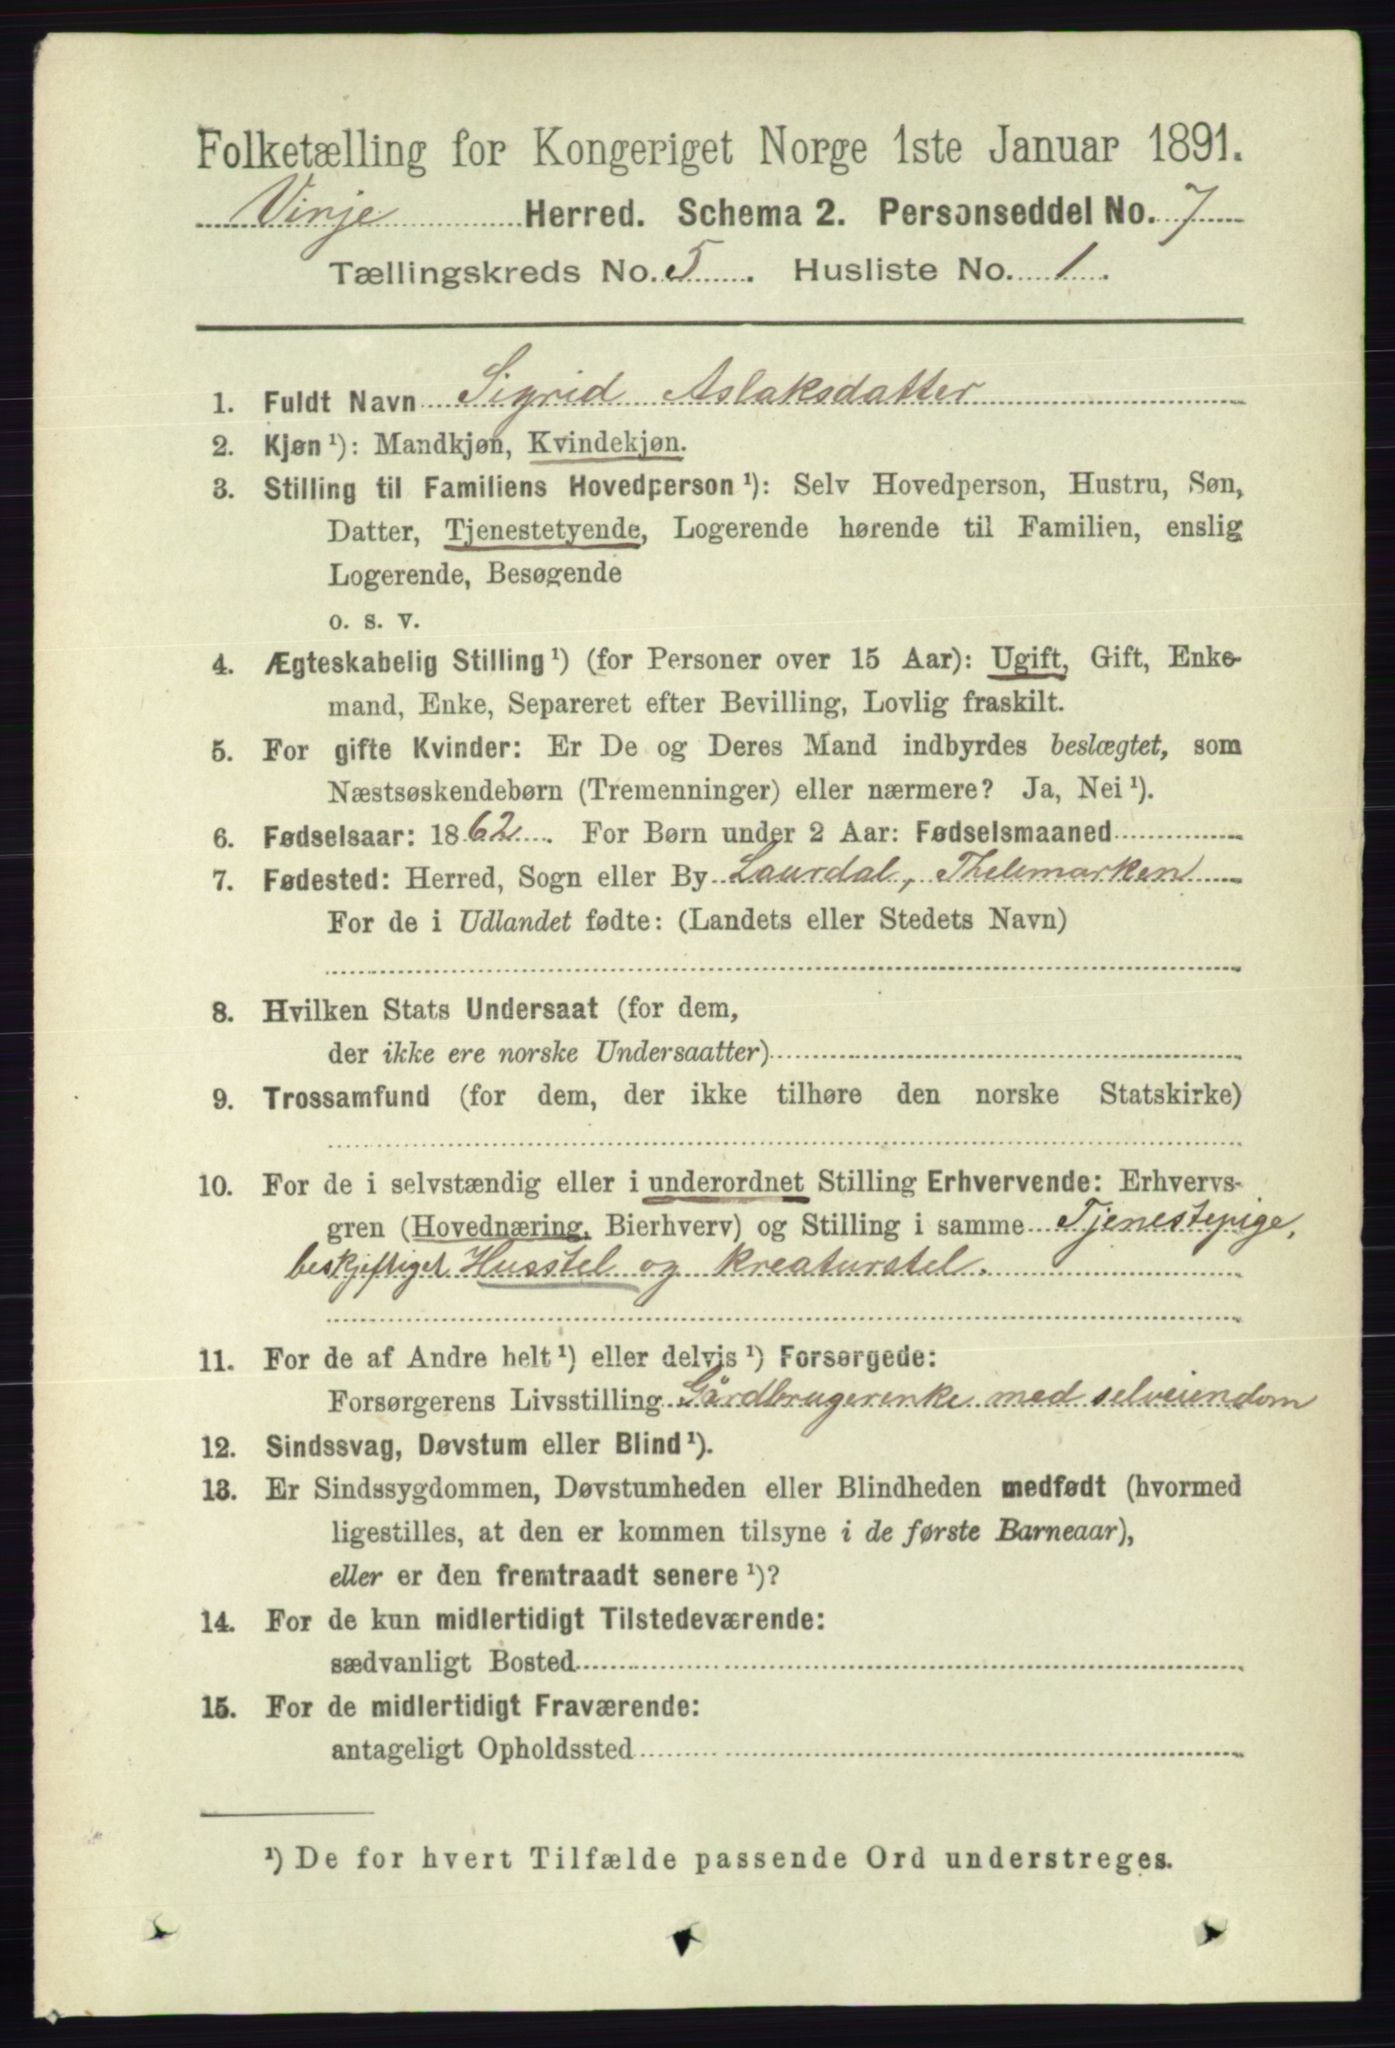 Folketælling for Kongeriget Norge 1ste Januar 1891.
Vinje Herred. Schema 2. Personseddel No. 7
Tællingskreds No. 5. Husliste No. 1.
1. Fuldt Navn Sigrid Aslaksdatter
2. Kjøn¹): Mandkjøn, Kvindekjøn.
3. Stilling til Familiens Hovedperson¹): Selv Hovedperson, Hustru, Søn,
Datter, Tjenestetyende, Logerende hørende til Familien, enslig
Logerende, Besøgende
o. s. v.
4. Ægteskabelig Stilling¹) (for Personer over 15 Aar): Ugift, Gift, Enke-
mand, Enke, Separeret efter Bevilling, Lovlig fraskilt.
5. For gifte Kvinder: Er De og Deres Mand indbyrdes beslægtet, som
Næstsøskendebørn (Tremenninger) eller nærmere? Ja, Nei¹).
6. Fødselsaar: 1862. For Børn under 2 Aar: Fødselsmaaned
7. Fødested: Herred, Sogn eller By Laurdal, Thelemarken
For de i Udlandet fødte: (Landets eller Stedets Navn)
8. Hvilken Stats Undersaat (for dem,
der ikke ere norske Undersaatter)
9. Trossamfund (for dem, der ikke tilhøre den norske Statskirke)
10. For de i selvstændig eller i underordnet Stilling Erhvervende: Erhvervs-
gren (Hovednæring, Bierhverv) og Stilling i samme Tjenestepige,
beskjeftiget Husstel og kreaturstel.
11. For de af Andre helt¹) eller delvis¹) Forsørgede:
Forsørgerens Livsstilling Gårdbrugerenke med selveiendom
12. Sindssvag, Døvstum eller Blind¹).
13. Er Sindssygdommen, Døvstumheden eller Blindheden medfødt (hvormed
ligestilles, at den er kommen tilsyne i de første Barneaar),
eller er den fremtraadt senere¹)?
14. For de kun midlertidigt Tilstedeværende:
sædvanligt Bosted
15. For de midlertidigt Fraværende:
antageligt Opholdssted
¹) De for hvert Tilfælde passende Ord understreges.